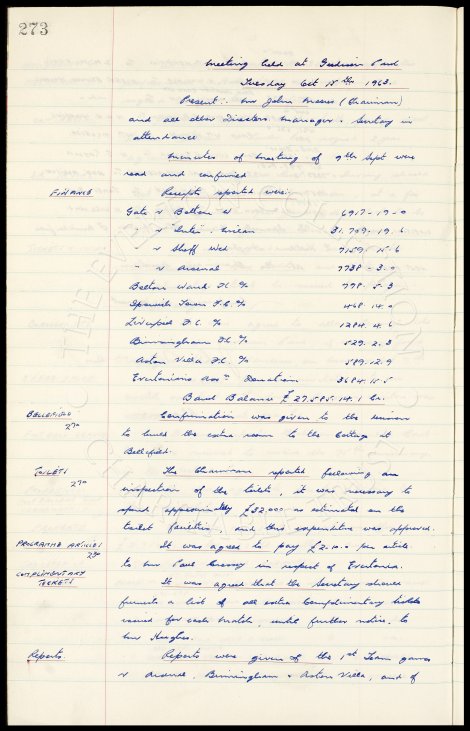 273
Meeting held at Goodison Park
Tuesday Oct 1963.
Present:- Mr John Moores (Chairman)
and all other Directors Manager & Secretary in
attendance
Minutes of meeting of 9th Sept were
read and confirmed
FINANCE Receipts reported were:-
Gate v Bolton W 6917-19-0
" v "Inter" Milan 31.709-19.6
" v Sheff Wed 7159.15.6
" v Arsenal 7738-3.9
Bolton Wand F.C. % 778.5.3
Ipswich Town F.C. % 468.14.0
Liverpool F.C. % 1284.4.6
Birmingham F.C. % 529.2.3
Aston Villa F.C. % 589.12.9
Evertonians Assn Donation 3684.15.5
Bank Balance £27.585.14.1 Cr.
BELLEFIELD Confirmation was given to the decision
to build the extra room to the Cottage at
Bellefield.
TOILETS The Chairman reported following an
inspection of the toilets, it was necessary to
spend approximately £32,000 as estimated on the
toilet facilities, and this expenditure was approved.
PROGRAMME ARTICLES It was agreed to pay £2.10.0 per article
to Mr Paul in respect of Evertonia.
COMPLIMENTARY TICKETS It was agreed that the Secretary should
furnish a list of all extra Complimentary tickets
issued for each match, until further notice, to
Mr Hughes.
Reports. Reports were given of the 1st Team games
v Arsenal, Birmingham & Aston Villa, and of